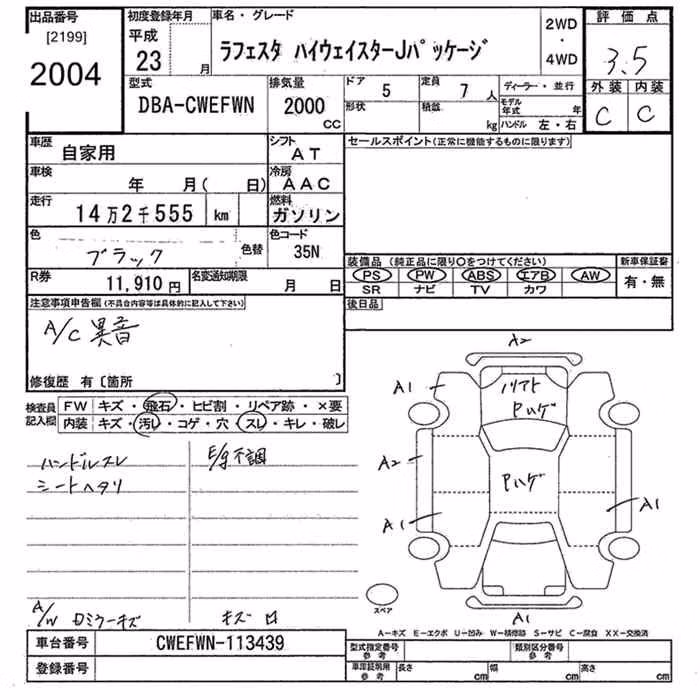 出品番号 初度登録年月 車名・グレード 2WD 評価点
[2199] 平成 ・
2004 23 月 ラフェスタ ハイウェイスターJパッケージ 4WD 3.5
型式 排気量 ドア 5 定員 7 人 ディーラー・並行 外装 内装
DBA-CWEFWN 2000 CC 形状 積載 kg モデル年式 年 C C
ハンドル 左・右
車歴 自家用 シフト AT セールスポイント(正常に機能するものに限ります)
車検 年 月( 日) 冷房 AAC
走行 14万2千555 km 燃料 ガソリン
色 ブラック 色替 色コード 35N
装備品(純正品に限り○をつけてください) 新車保証書
R券 11,910 円 名変通知期限 月 日 PS PW ABS エアB AW 有・無
SR ナビ TV カワ
注意事項申告欄(不具合内容等は具体的に記入して下さい) 後日品
A/C 異音
修復歴 有〔箇所 〕
検査員記入欄 FW キズ・飛石・ヒビ割・リペア跡・×要
内装 キズ・汚レ・コゲ・穴・スレ・キレ・破レ
ハンドルスレ E/g不調
シートヘタリ
A/W ロミラーキズ キズ
A2
A1
Pハゲ
A2 Pハゲ
A1 A1
スペア
A1
A-キズ E-エクボ U-凹み W-補修跡 S-サビ C-腐食 XX-交換済
車台番号 CWEFWN-113439 型式指定番号 参考 類別区分番号 参考
登録番号 車庫証明用 参考 長さ cm 幅 cm 高さ cm